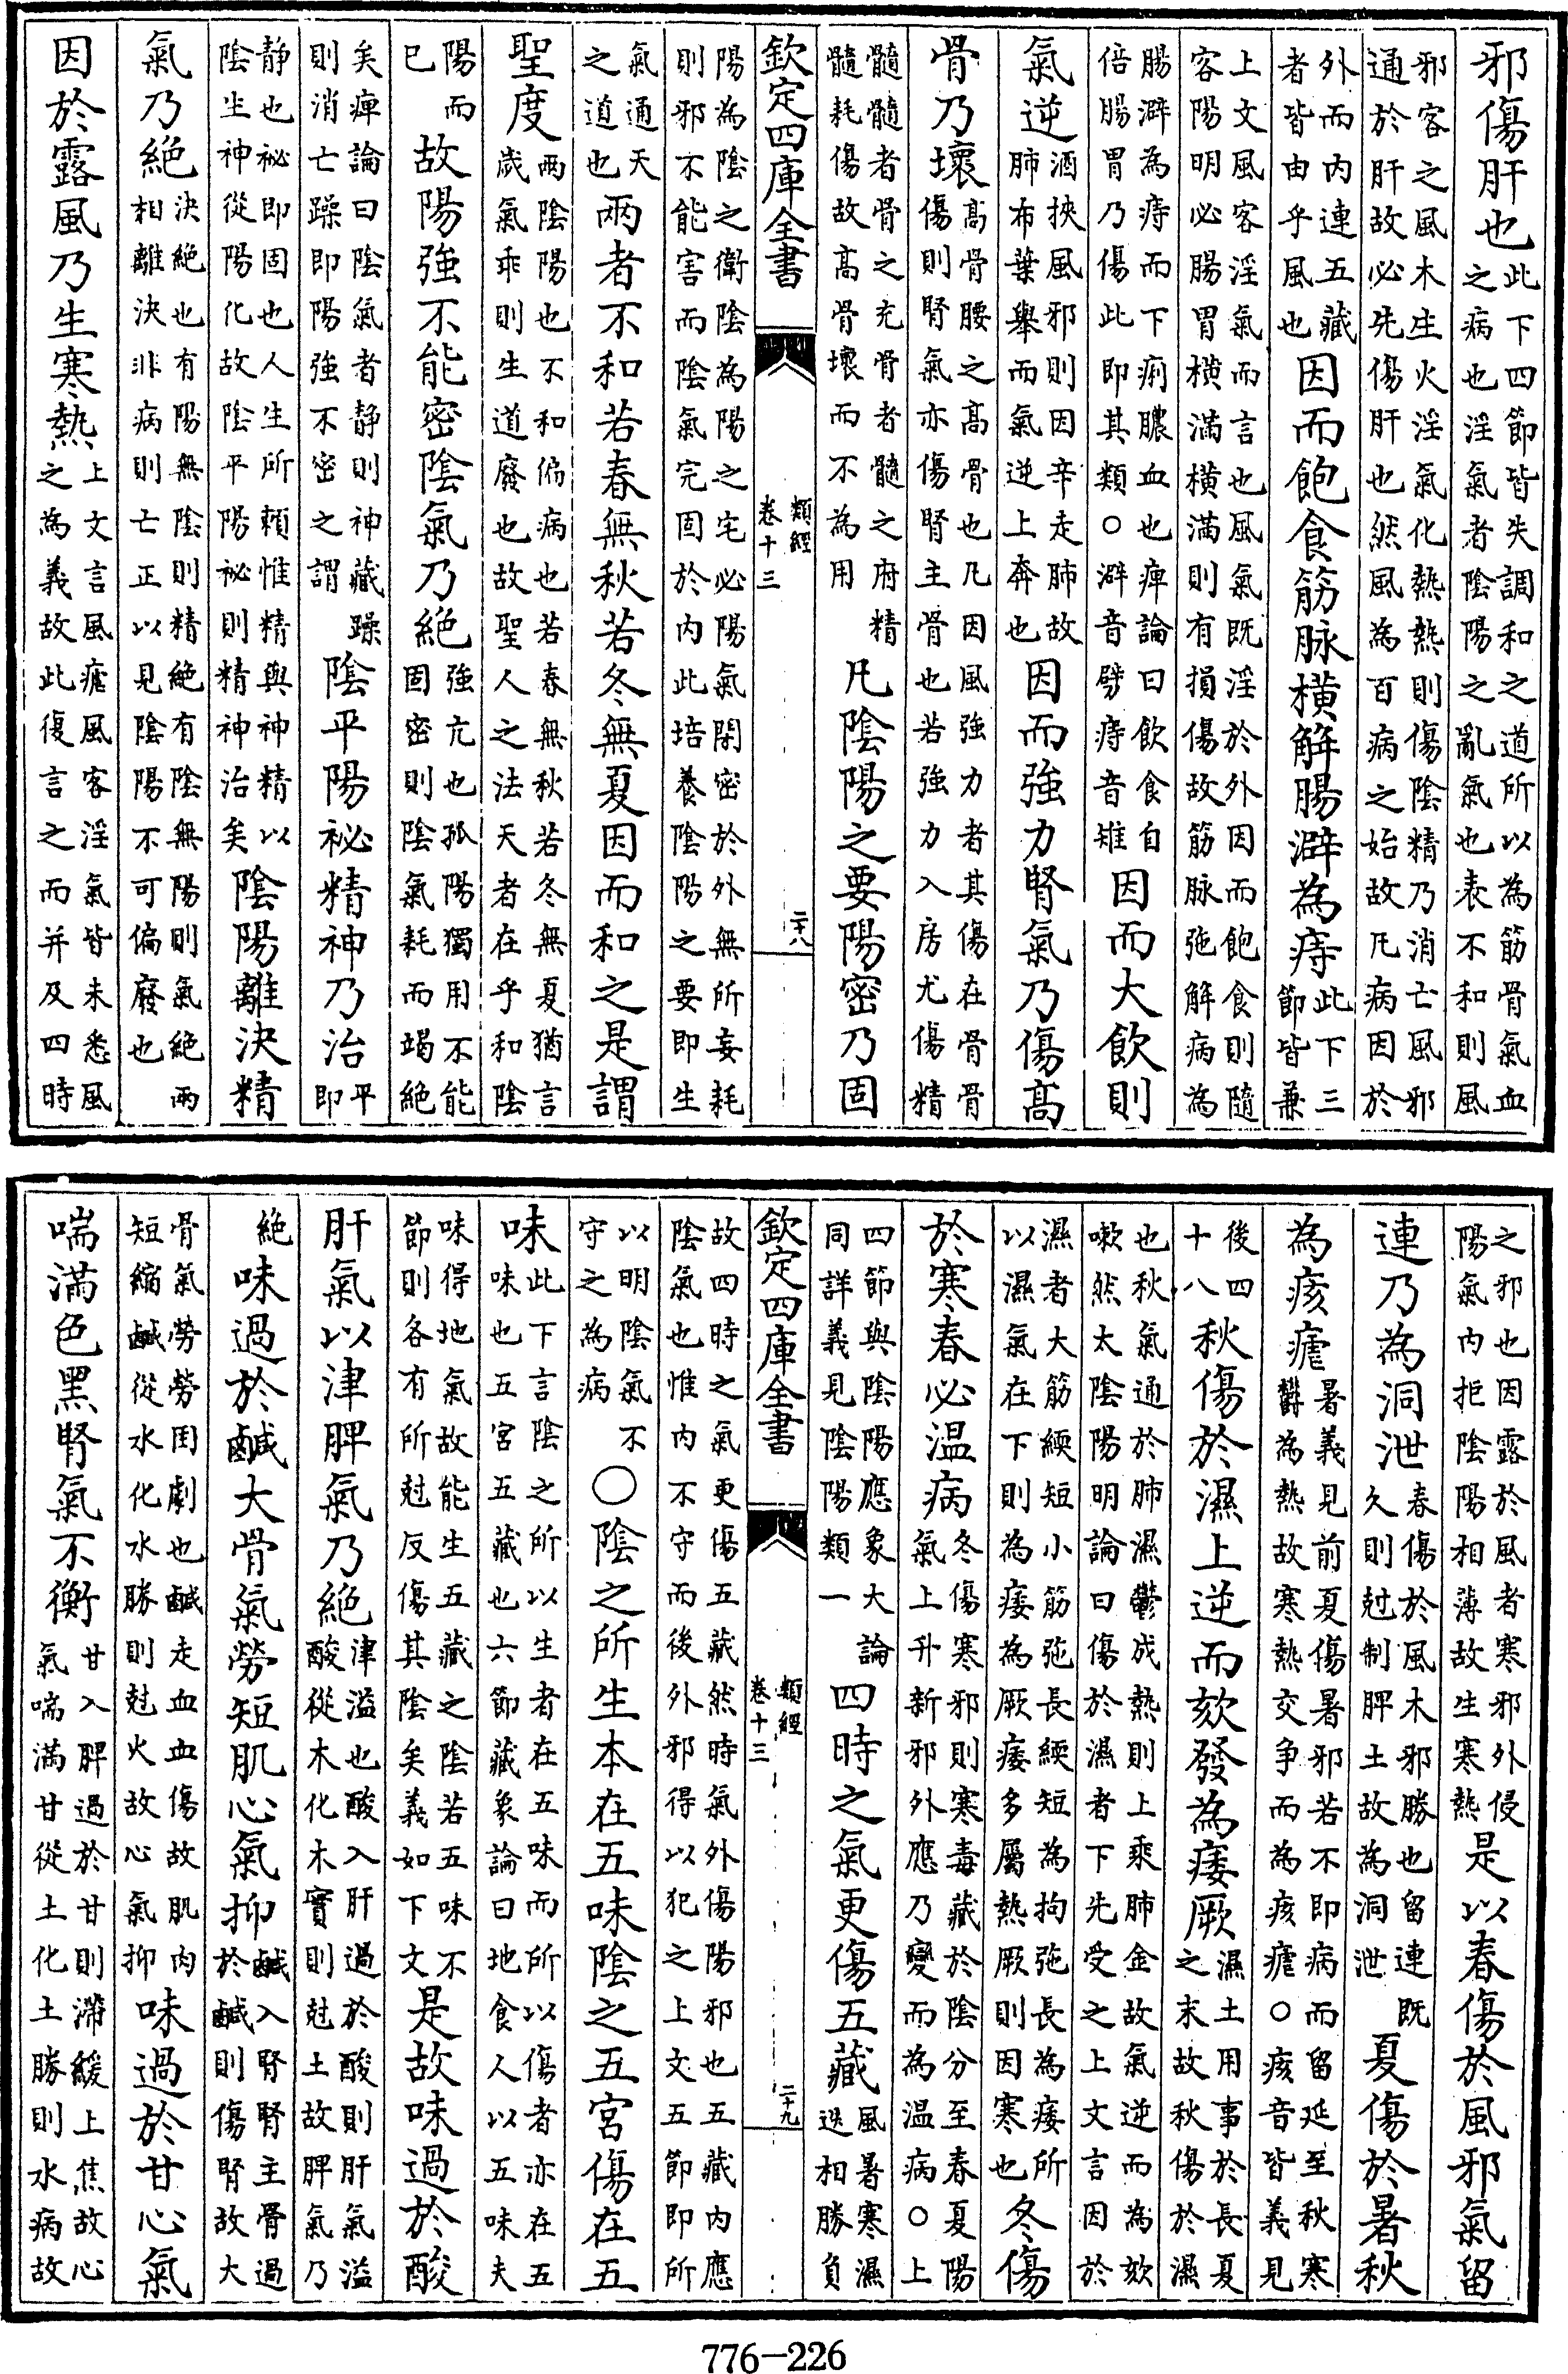 邪傷肝也此下四節皆失調和之道所以為筋骨氣血之病也淫氣者陰陽之亂氣也表不和則風
邪客之風木生火淫氣化熱熱則傷陰精乃消亡風邪通於肝故必先傷肝也然風為百病之始故凡病因於
外而内連五藏者皆由乎風也因而飽食筋脉横解腸澼為痔此下三節皆兼
上文風客淫氣而言也風氣既淫於外因而飽食則隨容陽明必腸胃横滿横滿則有損傷故筋脉弛解病為
腸澼為痔而下痢膿血也痺論曰飲食自倍腸胃乃傷此即其類○澼音劈痔音雉因而大飲則
氣逆酒挾風邪則因辛走肺故肺布葉舉而氣逆上奔也因而強力腎氣乃傷髙
骨乃壞髙骨腰之髙骨也凡因風強力者其傷在骨骨傷則腎氣亦傷腎主骨也若強力入房尤傷精
髓髓者骨之充骨者髓之府精髓耗傷故髙骨壞而不為用凡陰陽之要陽密乃固
欽定四庫全書 類經 卷十三 二十八
陽為陰之衛陰為陽之宅必陽氣閉密於外無所妄耗則邪不能害而陰氣完固於内此培養陰陽之要即生
氣通天之道也兩者不和若春無秋若冬無夏因而和之是謂
聖度兩陰陽也不和偏病也若春無秋若冬無夏猶言歲氣乖則生道廢也故聖人之法天者在乎和陰
陽而已故陽強不能密陰氣乃絶強亢也孤陽獨用不能固密則陰氣耗而竭絶
矣痺論曰陰氣者静則神藏躁則消亡躁即陽強不密之謂陰平陽祕精神乃治平即
静也祕即固也人生所賴惟精與神精以陰生神從陽化故陰平陽祕則精神治矣陰陽離決精
氣乃絶決絶也有陽無陰則精絶有陰無陽則氣絶兩相離決非病則亡正以見陰陽不可偏廢也
因於露風乃生寒熱上文言風瘧風客淫氣皆未悉風之為義故此復言之而并及四時
之邪也因露於風者寒邪外侵陽氣内拒陰陽相薄故生寒熱是以春傷於風邪氣留
連乃為洞泄春傷於風木邪勝也留連既久則尅制脾土故為洞泄夏傷於暑秋
為痎瘧暑義見前夏傷暑邪若不即病而留延至秋寒欝為熱故寒熱交争而為痎瘧○痎音皆義見
後四十八秋傷於濕上逆而欬發為痿厥濕土用事於長夏之末故秋傷於濕
也秋氣通於肺濕鬱成熱則上乘肺金故氣逆而為欬嗽然太陰陽明論曰傷於濕者下先受之上文言因於
濕者大筋緛短小筋弛長緛短為拘弛長為痿所以濕氣在下則為痿為厥痿多屬熱厥則因寒也冬傷
於寒春必温病冬傷寒邪則寒毒藏於陰分至春夏陽氣上升新邪外應乃變而為温病○上
四節與陰陽應象大論同詳義見陰陽類一四時之氣更傷五藏風暑寒濕迭相勝負
欽定四庫全書 類經 卷十三 二十九
故四時之氣更傷五藏然時氣外傷陽邪也五藏内應陰氣也惟内不守而後外邪得以犯之上文五節即所
以明陰氣不守之為病○陰之所生本在五味陰之五宮傷在五
味此下言陰之所以生者在五味而所以傷者亦在五味也五宮五藏也六節藏象論曰地食人以五味夫
味得地氣故能生五藏之陰若五味不節則各有所尅反傷其陰矣義如下文是故味過於酸
肝氣以津脾氣乃絶津溢也酸入肝過於酸則肝氣溢酸從木化木實則尅土故脾氣乃
絶味過於鹹大骨氣勞短肌心氣抑鹹入腎腎主骨過於鹹則傷腎故大
骨氣勞勞困劇也鹹走血血傷故肌肉短縮鹹從水化水勝則尅火故心氣抑味過於甘心氣
喘滿色黑腎氣不衡甘入脾過於甘則滯緩上焦故心氣喘滿甘從土化土勝則水病故
776-226